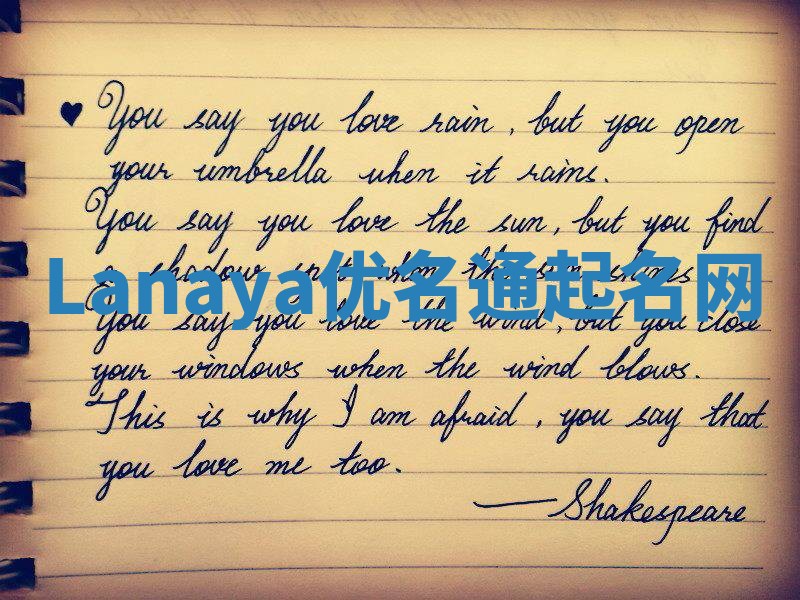 You say you love rain, but you open
your umbrella when it rains.
You say you love the sun, but you find
a shadow spot when the sun shines
Lanaya优名通起名网
You say you love the wind, but you close
your windows when the wind blows.
This is why I am afraid, you say that
you love me too.
— Shakespeare